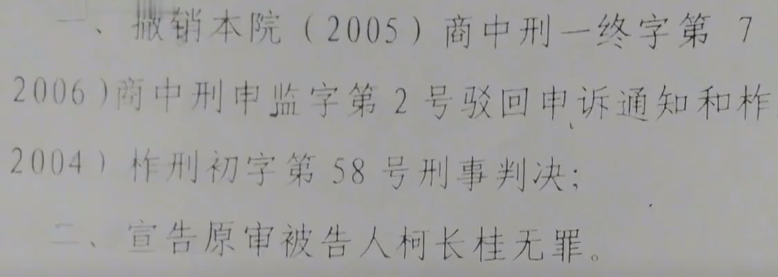 一、撤销本院（2005）商中刑一终字第 7
2006)商中刑申监字第 2 号驳回申诉通知和柞
2004）柞刑初字第 58 号刑事判决;
二、宣告原审被告人柯长桂无罪。